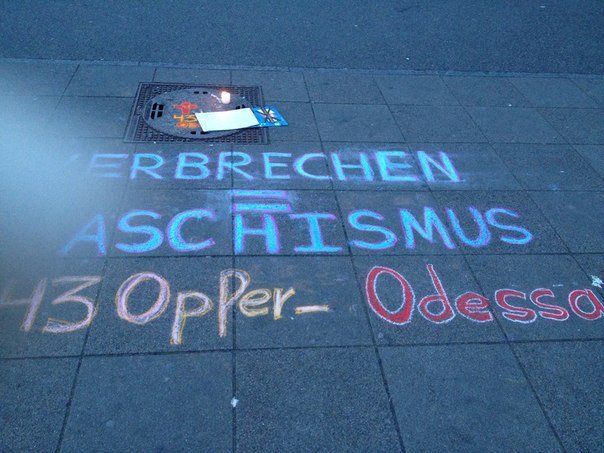 43
VERBRECHEN
=
ASCHISMUS
43 OpPer- Odessa